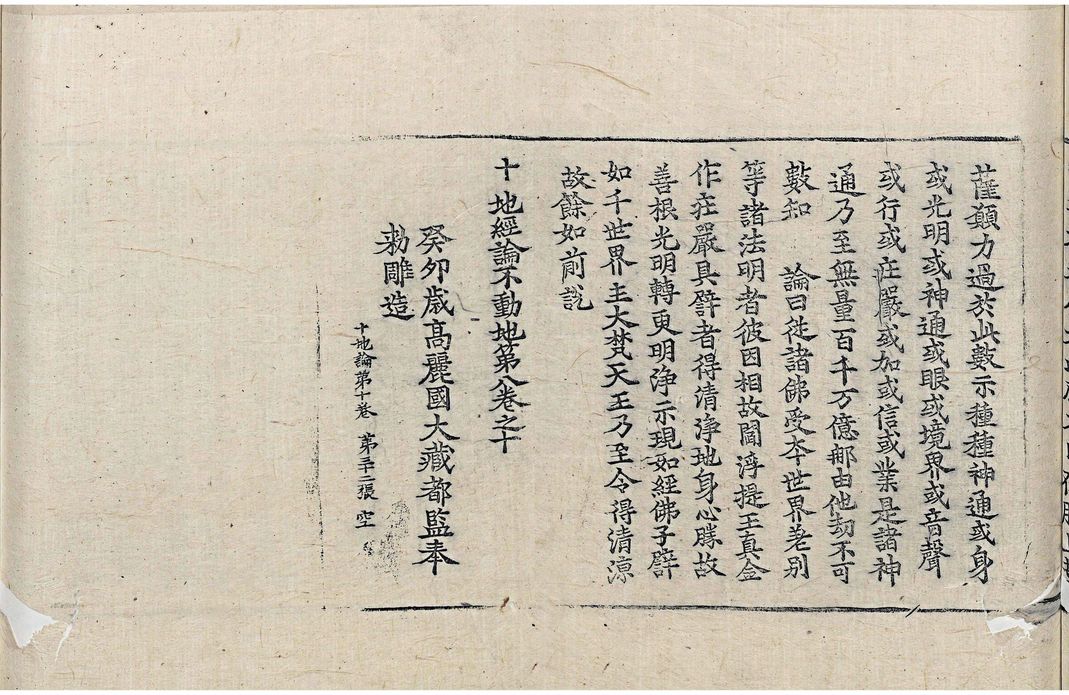 薩願力過於此數示種種神通或身
或光明或神通或眼或境界或音聲
或行或庄嚴或加或信或業是諸神
通乃至無量百千万億那由他劫不可
數知 論曰從諸佛受夲世界差別
等諸法明者彼因相故閻浮提王真金
作庄嚴具譬者得清淨地身心勝故
善根光明轉更明淨示現如經佛子譬
如千世界主大梵天王乃至令得清涼
故餘如前說
十地經論不動地第八卷之十
癸卯歲高麗國大藏都監奉
勑雕造
十地論第十卷 第三十二張 空